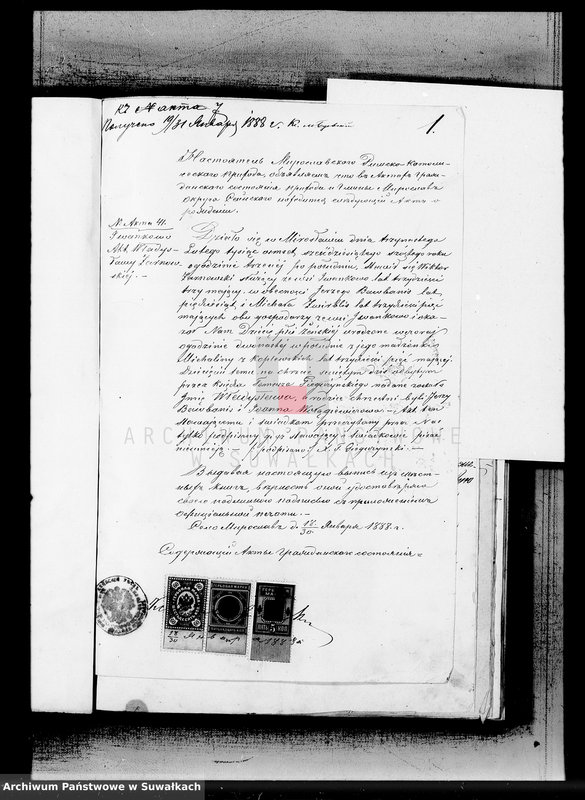 Къ № акта 7
Получено 19/31 Января 1888 г.
1.
Настоятель Мирославского Римско-Католи-
ческого Прихода, объявляетъ что въ Актахъ Граж-
данского состоянія прихода и Гмины Мирославъ
округа Сейнского находится следующій Актъ о
рожденіи.
№ Акта 41.
Iwankowo
Akt Włady-
sławy Żarnow-
skiéj. –
Działo się w Mirosławiu dnia trzynastego
Lutego tysiąc osmset sześćdziesiątego szóstego roku
ogodzinie trzeciéj po południu. Stawił się Wiktor
Żarnowski starszy zewsi Iwankowo lat trzydzieści
trzy mający, w obecności Jerzego Bawbanis lat
pięćdziesiąt i Michała lat trzydzieści pięć
mających obu gospodarzy zewsi Iwankowo i oka-
zał Nam Dziecię płci żeńskiéj urodzone wczoraj
ogodzinie dwunastéj w południe z jego małżonki
Michaliny z Koplewskich lat trzydzieści pięć mającéj.
Dziecięciu temu na chrzcie świętym dziś odbytym
przez Księdza nadane zostało
imię Władysława, a rodzice chrzestni byli Jerzy
Bawbanis i Joanna Akt ten
stawającemu i świadkom przeczytany przez Nas
tylko podpisany gdyż stawający i świadkowie pisać
nieumieją. – podpisano X.
ARCHIWUM PAŃSTWOWE
SUWAŁKACH
Выдавая настоящую выпись изъ метъ-
книгъ, верность оной удостоверяю
своею подлинною надписью съ приложеніемъ
оффиціальной печати. –
Село Мирославъ д. 18/30 Января 1888 г.
Содержащій Акты Гражданского состоянія
18/30 Января 1888
ПЯТЬ 5 КОП
Archiwum Państwowe w Suwałkach